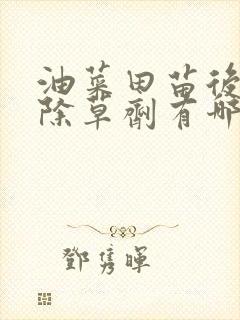 油菜田苗後
除草劑有哪
鄧雋暉